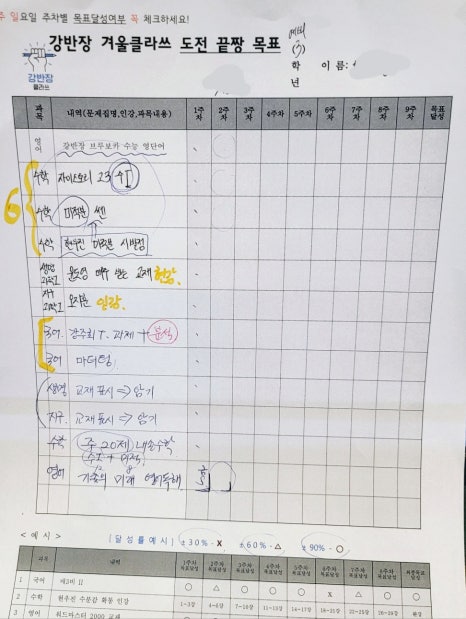 주 일요일 주차별 목표달성여부 꼭 체크하세요!
강반장 겨울클라쓰 도전 끝짱 목표
예비
(3)
학년
이 름:
강반장
클라쓰
과목 내역(문제집명,인강,과목내용) 1주차 2주차 3주차 4주차 5주차 6주차 7주차 8주차 9주차 목표달성
영어 강반장 브루보카 수능 영단어
6
수학 자이스토리 23 수I
수학 미적분 쎈
수학 현우진 미적분 시발점
생명과학I 윤도영 매주 받는 교재 현강
지구과학I 오지훈 인강
국어 강주희T. 과제 + 분석
국어 마더텅
생명 교재 표시 => 암기
지구 교재 표시 => 암기
수학 주 20제 내손수학
(수I + 미적)
12 8
영어 기출의 미래 영어독해
<예시> [달성률예시] ±30% - X ±60% - △ ±90% - ○
과목 내역 1주차 목표달성 2주차 목표달성 3주차 목표달성 4주차 목표달성 5주차 목표달성 6주차 목표달성 7주차 목표달성 8주차 목표달성 최종목표달성
1 국어 ○ △ ○ ○ ○ X △ ○ ○
2 수학 현우진 수분감 확통 인강 1~3강 4~6강 7~10강 11~13강 14~17강 18~21강 22~25강 26~29강 완강
3 영어 워드마스터 2000 교재